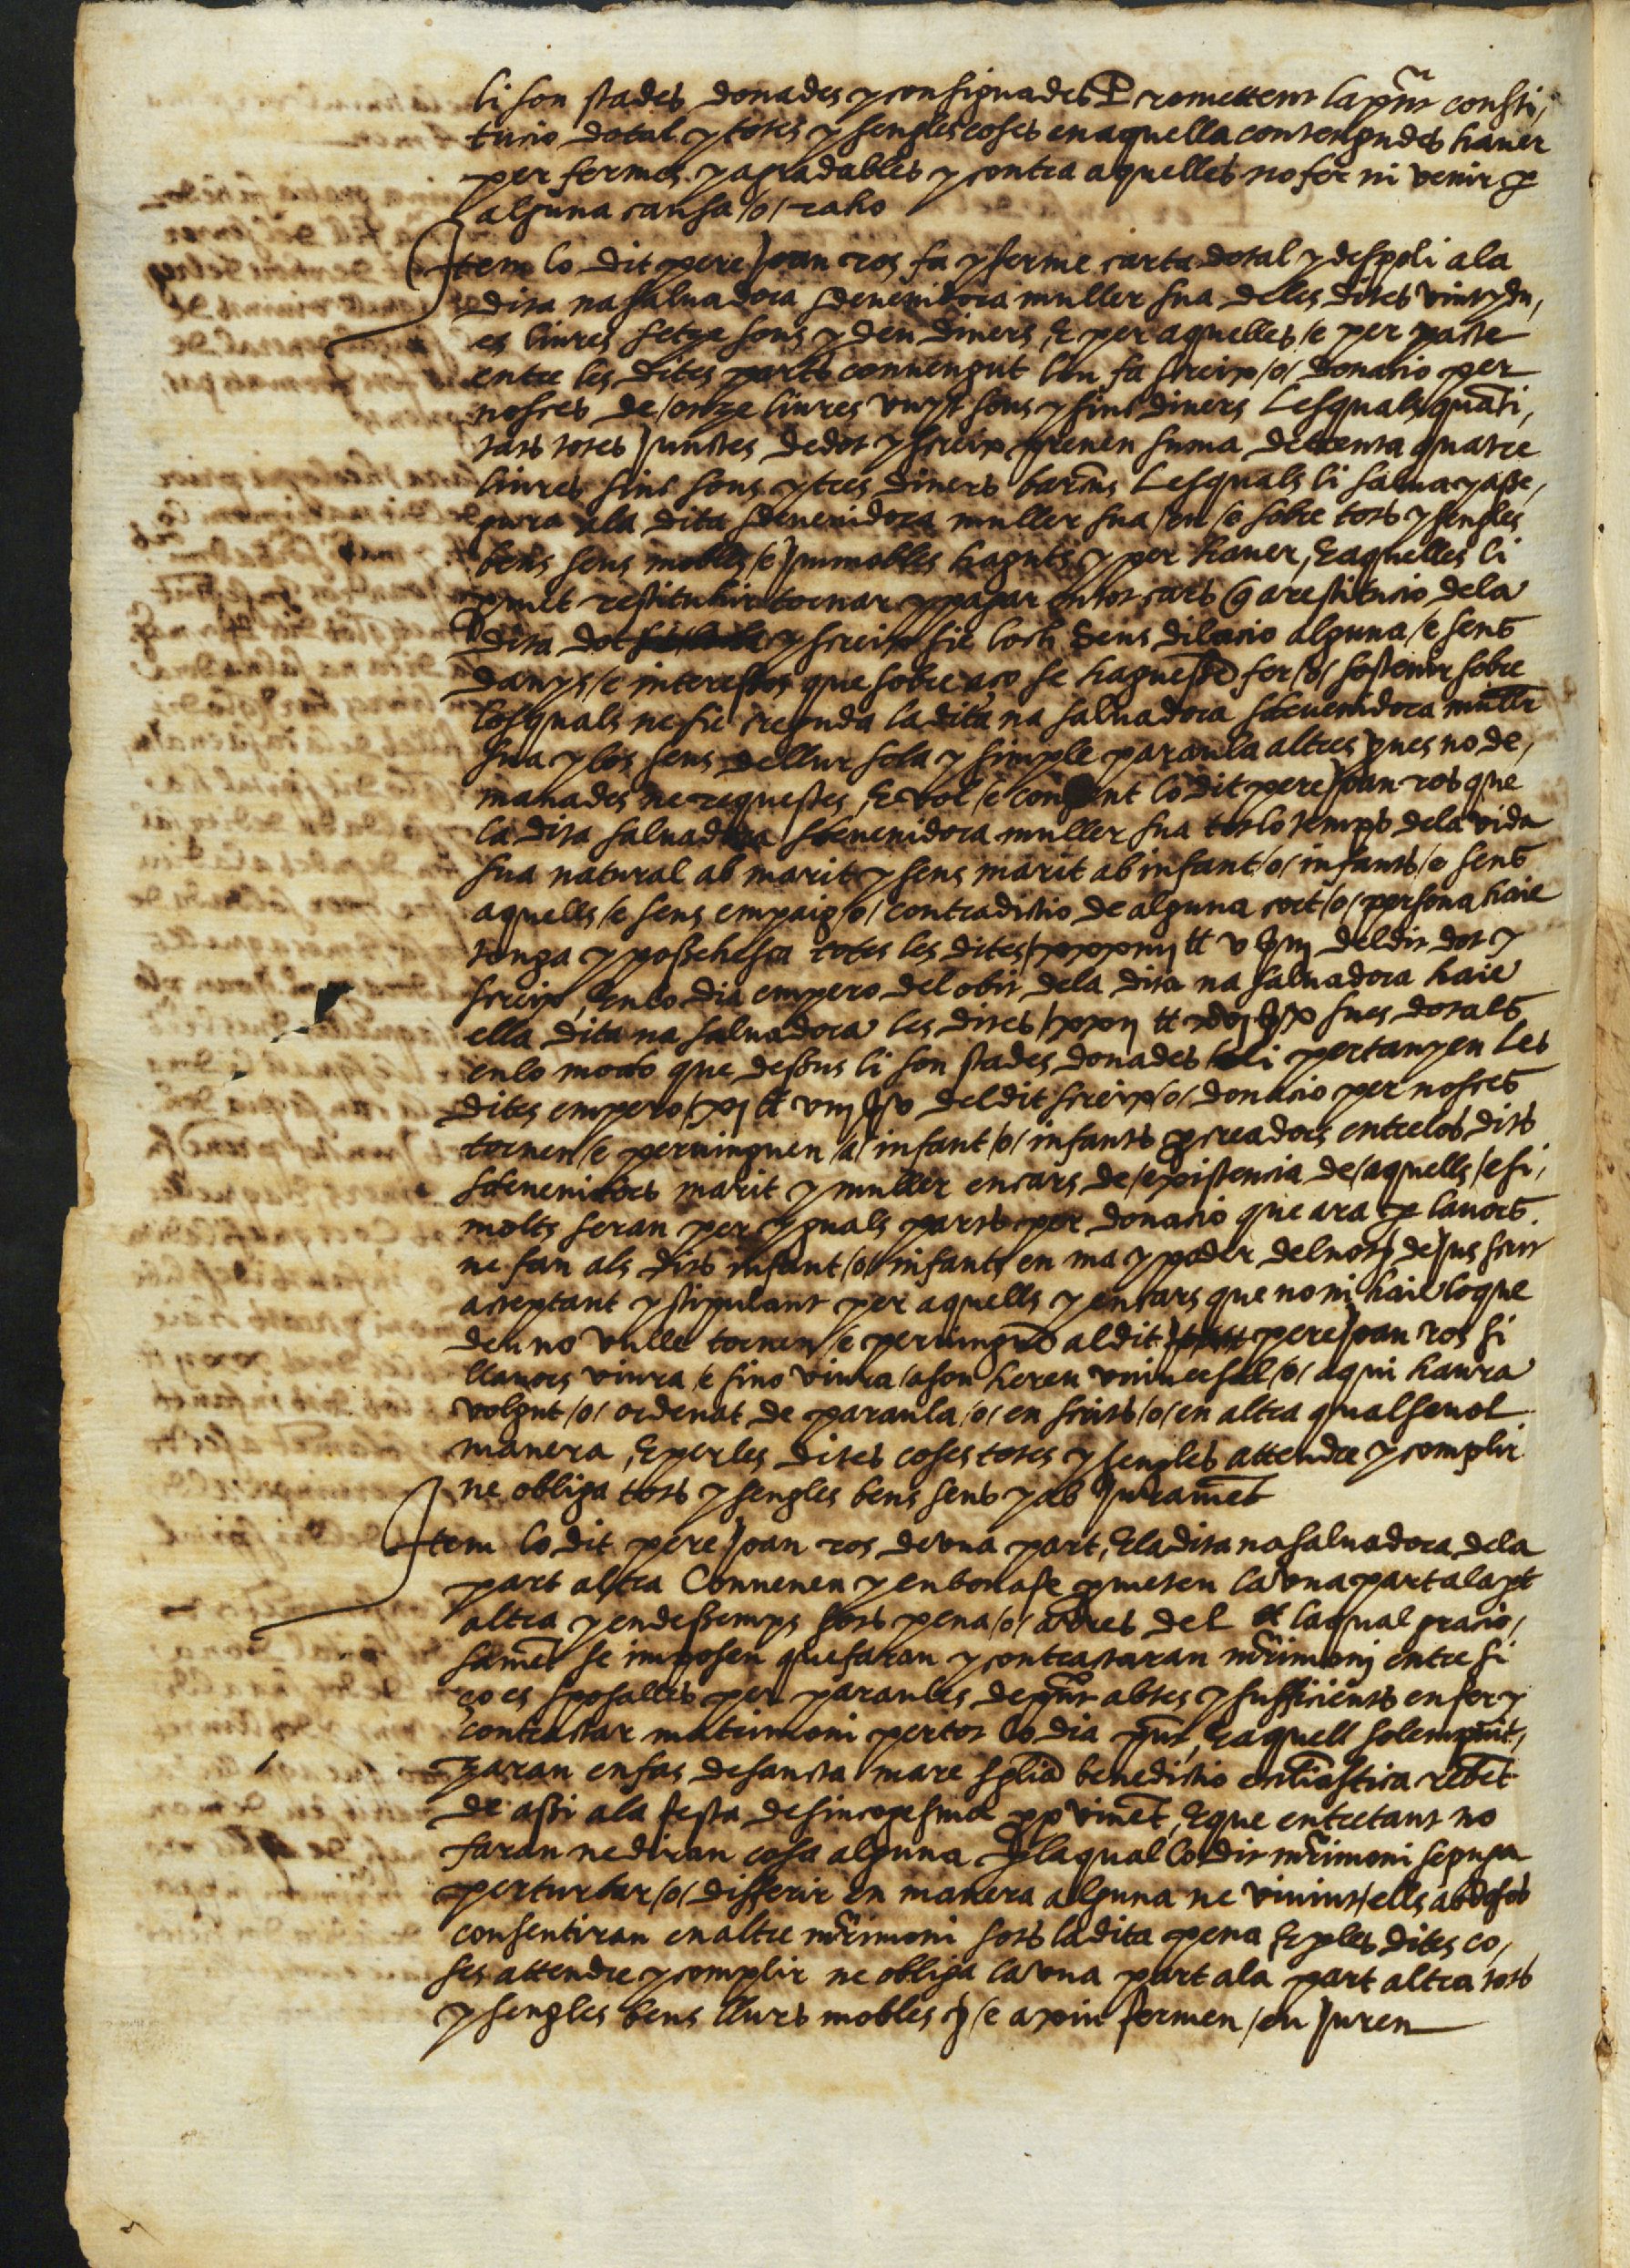 li son stades donades y consignades Prometent la pñt consti,
tucio dotal y totes y sengles coses en aquella contengudes haver
per fermes y agradables y contra aquelles no fer ni venir p
alguna causa /o/ raho
Item lo dit pere Joan ros fa y ferme carta dotal y despoli a la
dita na salvadora sdevenidora muller sua de les dites vint y du,
es liures setze sous y deu diners, E per aquelles /e per pacte
entre les dites parts convengut lin fa screix /o/ donacio per
nosces de /onze liures vuyt sous y sinc diners Lesquals quāti,
tats totes Junctes de dot y screix prenen suma de trenta quatre
liures sinc sous y tres diners barc̃ns Lesquals li salva y asse,
gura a la dita sdevenidora muller sua /en /e sobre tots y sengles
bens seus mobles /e Immobles haguts y per haver, E aquelles li
pmet restituhir tornar y pagar en tot cars q̃ a restitucio de la
dita dot y screix sie loch Sens dilacio alguna /e sens
danys /e interessos que sobre aço se hagues de fer /o/ sostenir sobre
losquals ne sie creguda la dita na salvadora sdevenidora mullr̃
sua y los seus de llur sola y simple paraula altres pves no de,
manades ne requestes, E vol /e consent lo dit pere Joan ros que
la dita salvadora sdevenidora muller sua tot lo temps de la vida
sua natural ab marit y sens marit ab infant /o/ infants /e sens
aquells /e sens empaig /o/ contradictio de alguna cort /o/ persona haie
tenga y possehesca totes les dites /xxxiiij ll v s iij del dit dot y
screix, En lo dia empero del obit de la dita na salvadora haie
ella dita na salvadora les dites /xxij ll xvj s x sues dotals
en lo modo que dessus li son stades donades e li pertanyen Les
dites empero /xj ll viij s v del dit screix /o/ donacio per nosces
tornen /e pervinguen /a/ infant /o/ infants pcreadors entre los dits
sdevenidors marit y muller en cars de /existencia de /aquells /e si,
molts seran per yguals parts per donacio que ara p lavors
ne fan als dits infant /o/ infants en ma y poder del not deJus scrit
acceptant y stipulant per aquells y en cars que no ni haie lo que
deu no vulle tornen /e pervinguē al dit pere Joan ros si
llavors viura /e si no viura /a son hereu universal /o/ a qui haura
volgut /o/ ordenat de paraula /o/ en scrits /o/ en altra qualsevol
manera, E per les dites coses totes y sengles attendre y complir
ne obliga tots y sengles bens seus y ab Juramēt
Item lo dit pere Joan ros de una part, E la dita na salvadora de la
part altra Convenen y en bona fe pmeten la una part a la pt
altra y endessemps sots pena /o/ arres de L ll laqual gracio,
samēt se imposen que faran y contractaran mr̃imoni entre si
ço es sposalles per paraules de pñt abtes y sufficients en fer y
contractar matrimoni per tot lo dia pñt, E aquell solempnit,
zaran en fas de sancta mare sglia benedictio ecclīastica rebēt
de assi a la festa de sincogesma pp vinēt, E que entretant no
faran ne diran cosa alguna p laqual lo dit mr̃imoni se puga
perturbar /o/ differir en manera alguna ne vivint /ells abdosos
consentiran en altre mr̃imoni sots la dita pena E p les dites co,
ses attendre y complir ne obliga la una part a la part altra tots
y sengles bens llurs mobles &c /e axiu fermen /eu Juren